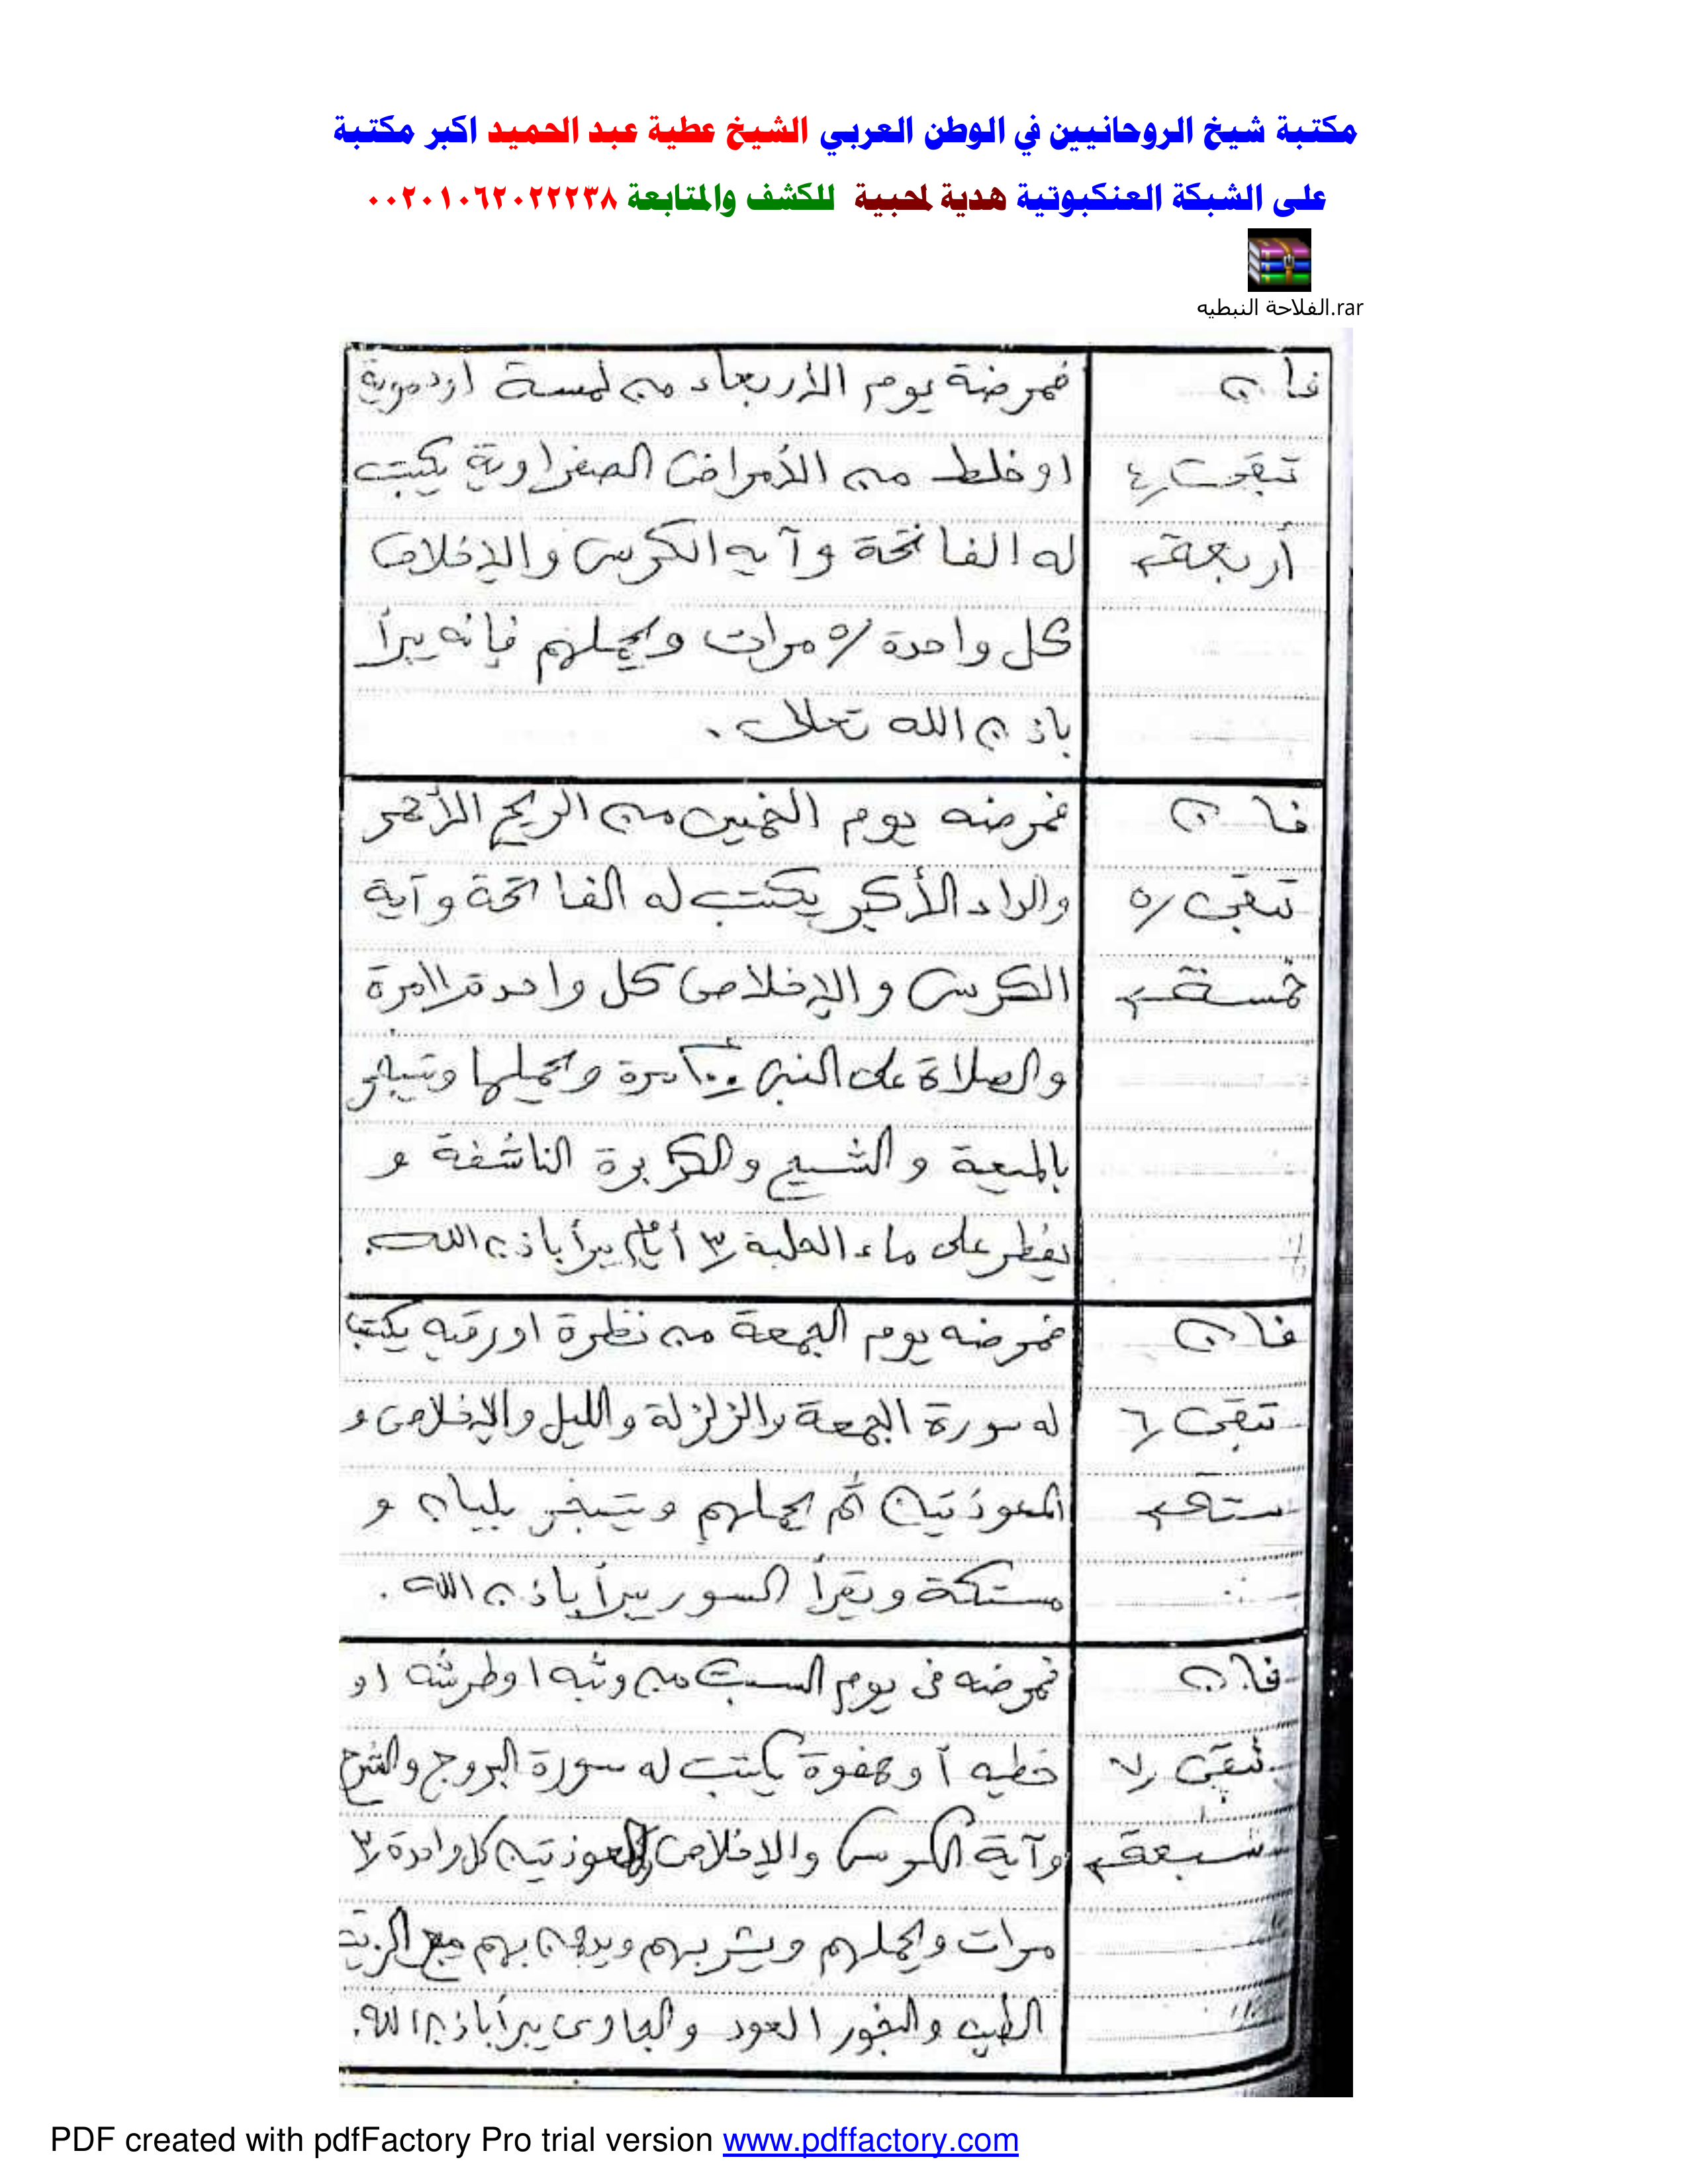 مكتبة شيخ الروحانيين في الوطن العربي الشيخ عطية عبد الحميد اكبر مكتبة
على الشبكة العنكبوتية هدية لمحبية للكشف والمتابعة ٠٠٢٠١٠٦٢٠٢٢٢٣٨
الفلاحة النبطيه.rar
فان
تبقت ٤
أربعة
فمرضة يوم الأربعاء من لمسة او دموية
او خلط من الأمراض الصفراوية يكتب
له الفاتحة وآيه الكرسى والإخلاص
كل واحدة ٥ مرات ويحملهم فإنه يبرأ
باذن الله تعالى .
فان
تبقى ٥
خمسة
فمرضه يوم الخميس من الريح الأحمر
والداء الأكبر يكتب له الفاتحة وآية
الكرسى والإخلاص كل واحدة ١١ مرة
والصلاة على النبى ١٠٠ مرة ويحملها ويتبخر
بالميعة والشيح والكزبرة الناشفة و
يفطر على ماء الحلبة ٣ أيام يبرأ باذن الله.
فان
تبقى ٦
ستة
فمرضه يوم الجمعة من نظرة او يكتب
له سورة الجمعة والزلزلة والليل والإخلاص و
المعوذتين ثم يحملهم ويتبخر بلبان و
مستكة ويقرأ السور يبرأ باذن الله .
فان
تبقى ٧
سبعة
فمرضه فى يوم السبت من وثبه او طرشه او
خطيه أو هفوة يكتب له سورة البروج والشرح
وآية الكرسى والإخلاص والمعوذتين كل واحدة ٣
مرات ويحملهم ويشربهم ويدهن بهم مع الزيت
الطيب والبخور العود والجاوى يبرأ باذن الله.
PDF created with pdfFactory Pro trial version www.pdffactory.com